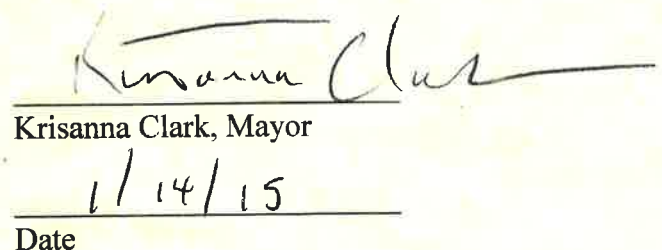 Krisanna Clark
Krisanna Clark, Mayor
1/14/15
Date